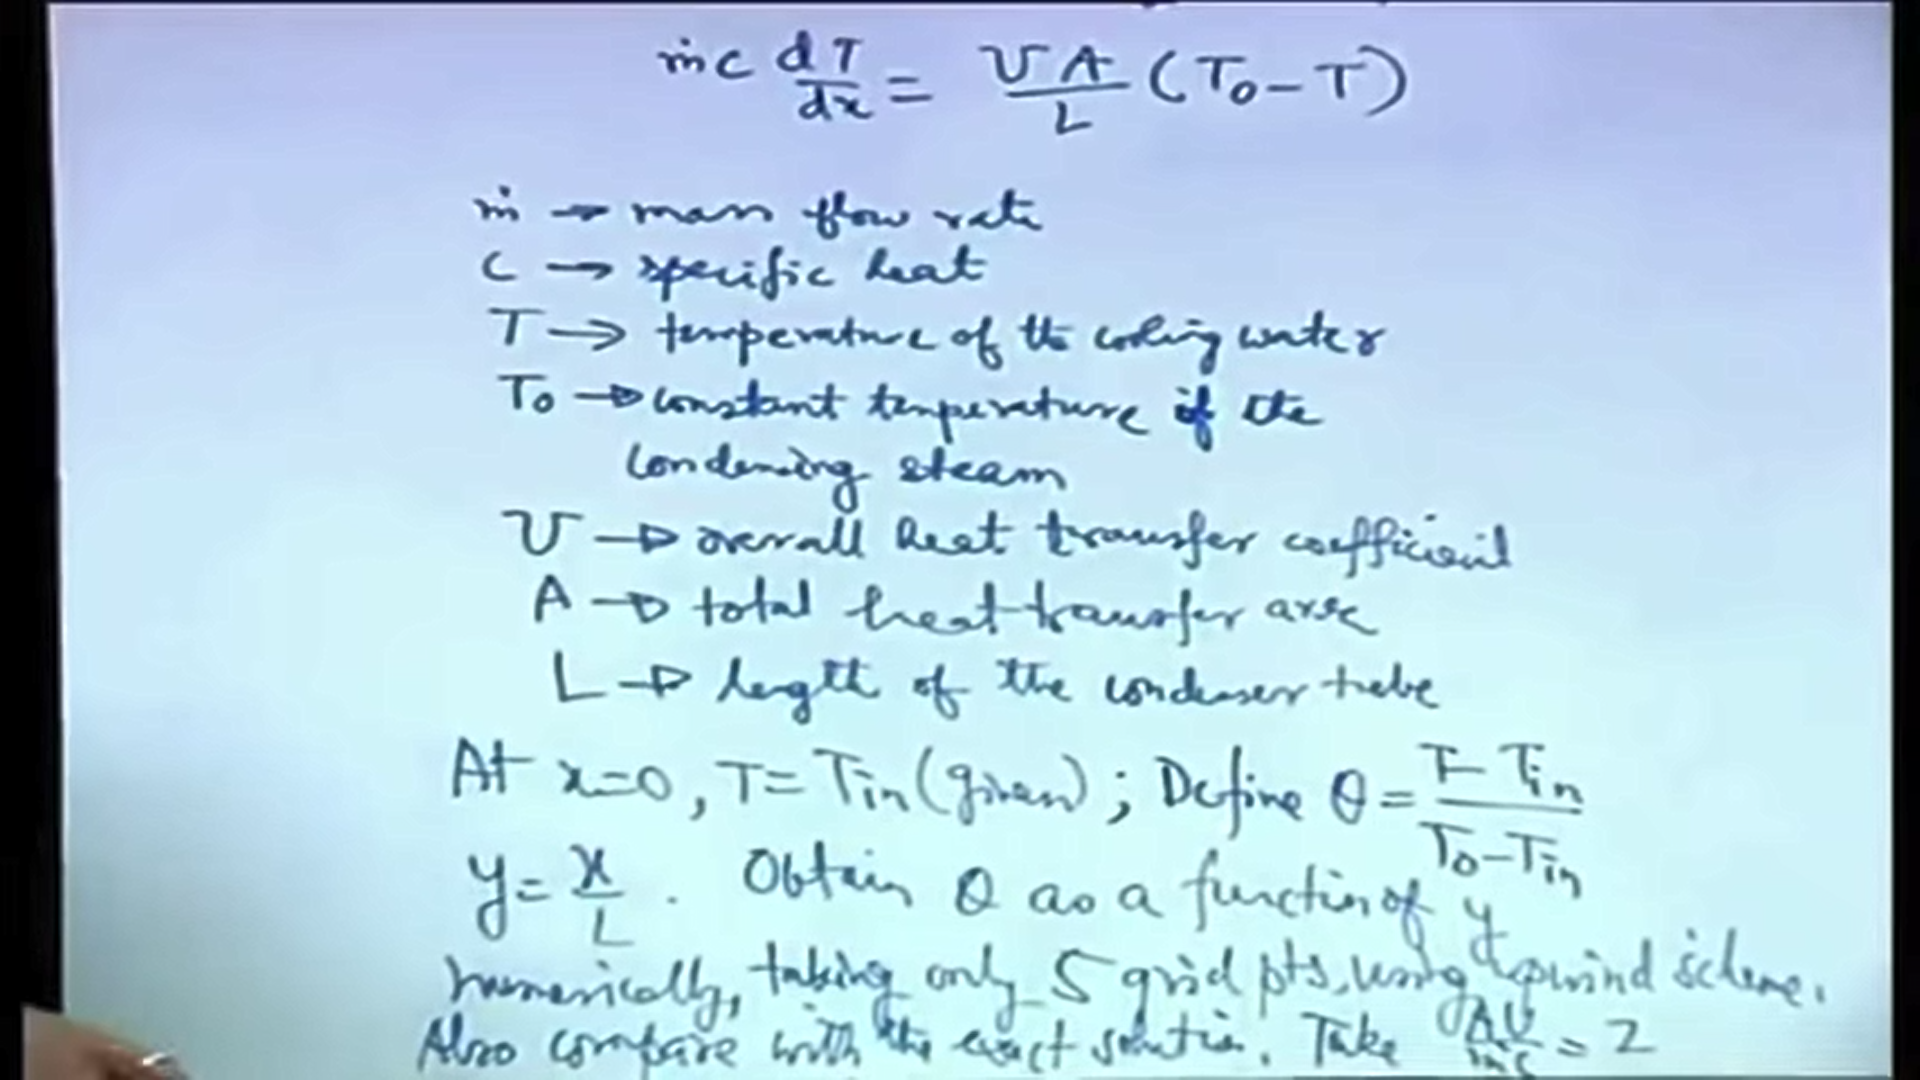 ṁc dT/dx = UA/L (To - T)
ṁ → mass flow rate
C → specific heat
T → temperature of the cooling water
To → constant temperature of the
condensing steam
U → overall heat transfer coefficient
A → total heat transfer area
L → length of the condenser tube
At x=0, T = Tin (given); Define θ = T - Tin / To - Tin
y = x/L . Obtain θ as a function of y
numerically, taking only 5 grid pts, using upwind scheme.
Also compare with the exact solution. Take AU/ṁc = 2